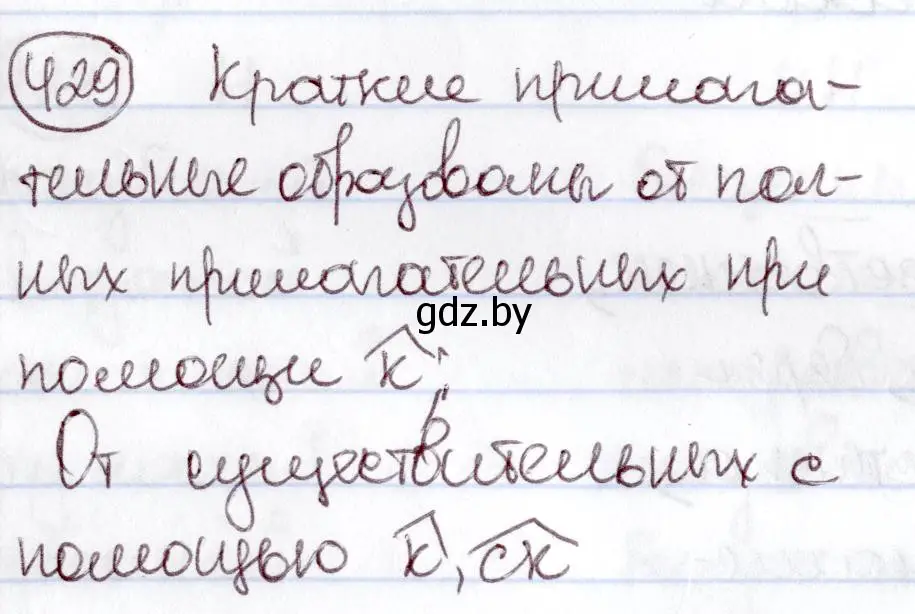 429 Краткие прилага-
тельные образованы от пол-
ных прилагательных при
gdz.by
помощи к;
От существительных с
помощью к, ск